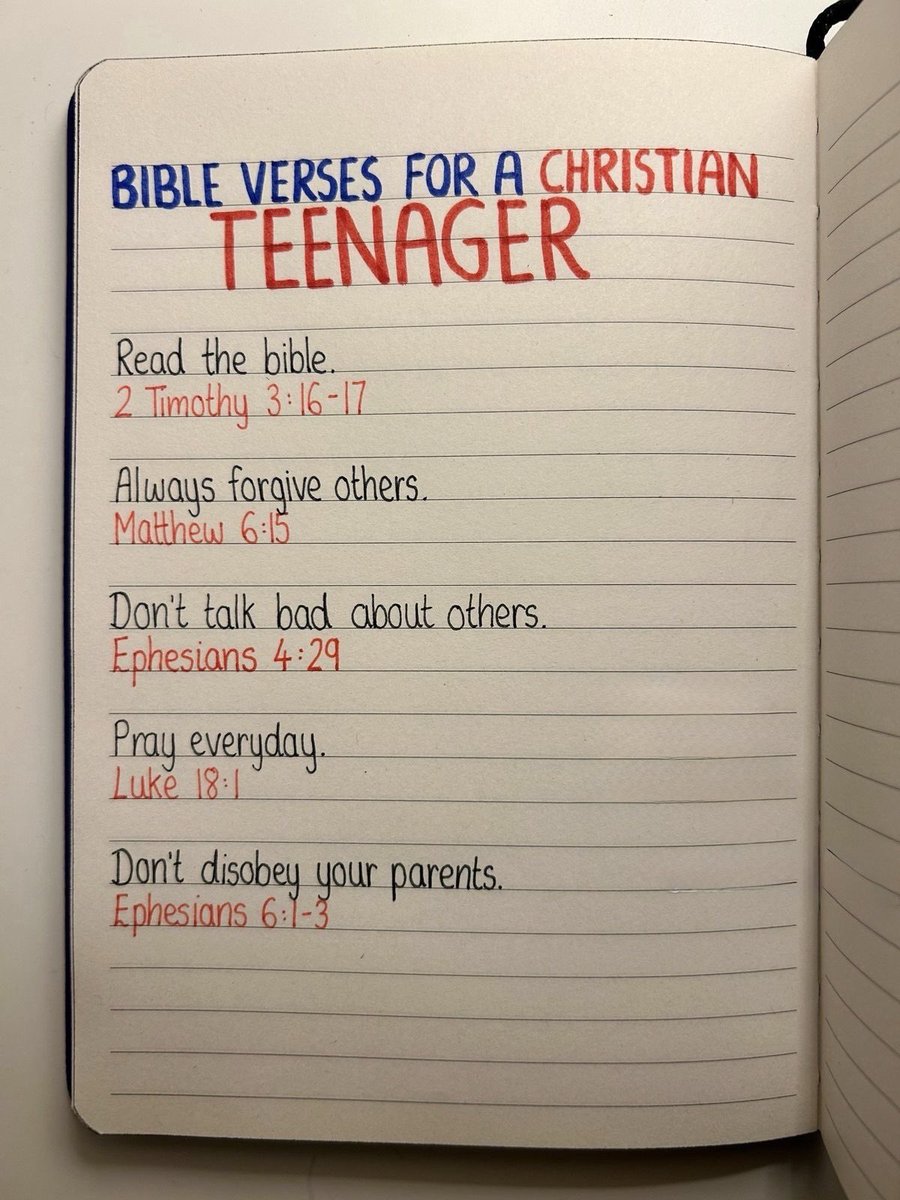 BIBLE VERSES FOR A CHRISTIAN
TEENAGER
Read the bible.
2 Timothy 3:16-17
Always forgive others.
Matthew 6:15
Don't talk bad about others.
Ephesians 4:29
Pray everyday.
Luke 18:1
Don't disobey your parents.
Ephesians 6:1-3